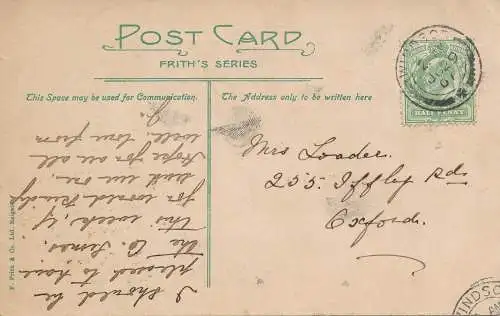 POST CARD
FRITH'S SERIES
This Space may be used for Communication.
The Address only to be written here
I should be
pleased to have
the
this week, if
you would kindly
send me one.
Hope you are all
well, love from
Mrs Loader.
255. Iffley Rd.
Oxford.
F. Frith & Co. Ltd. Reigate
HALF PENNY
WINDSOR